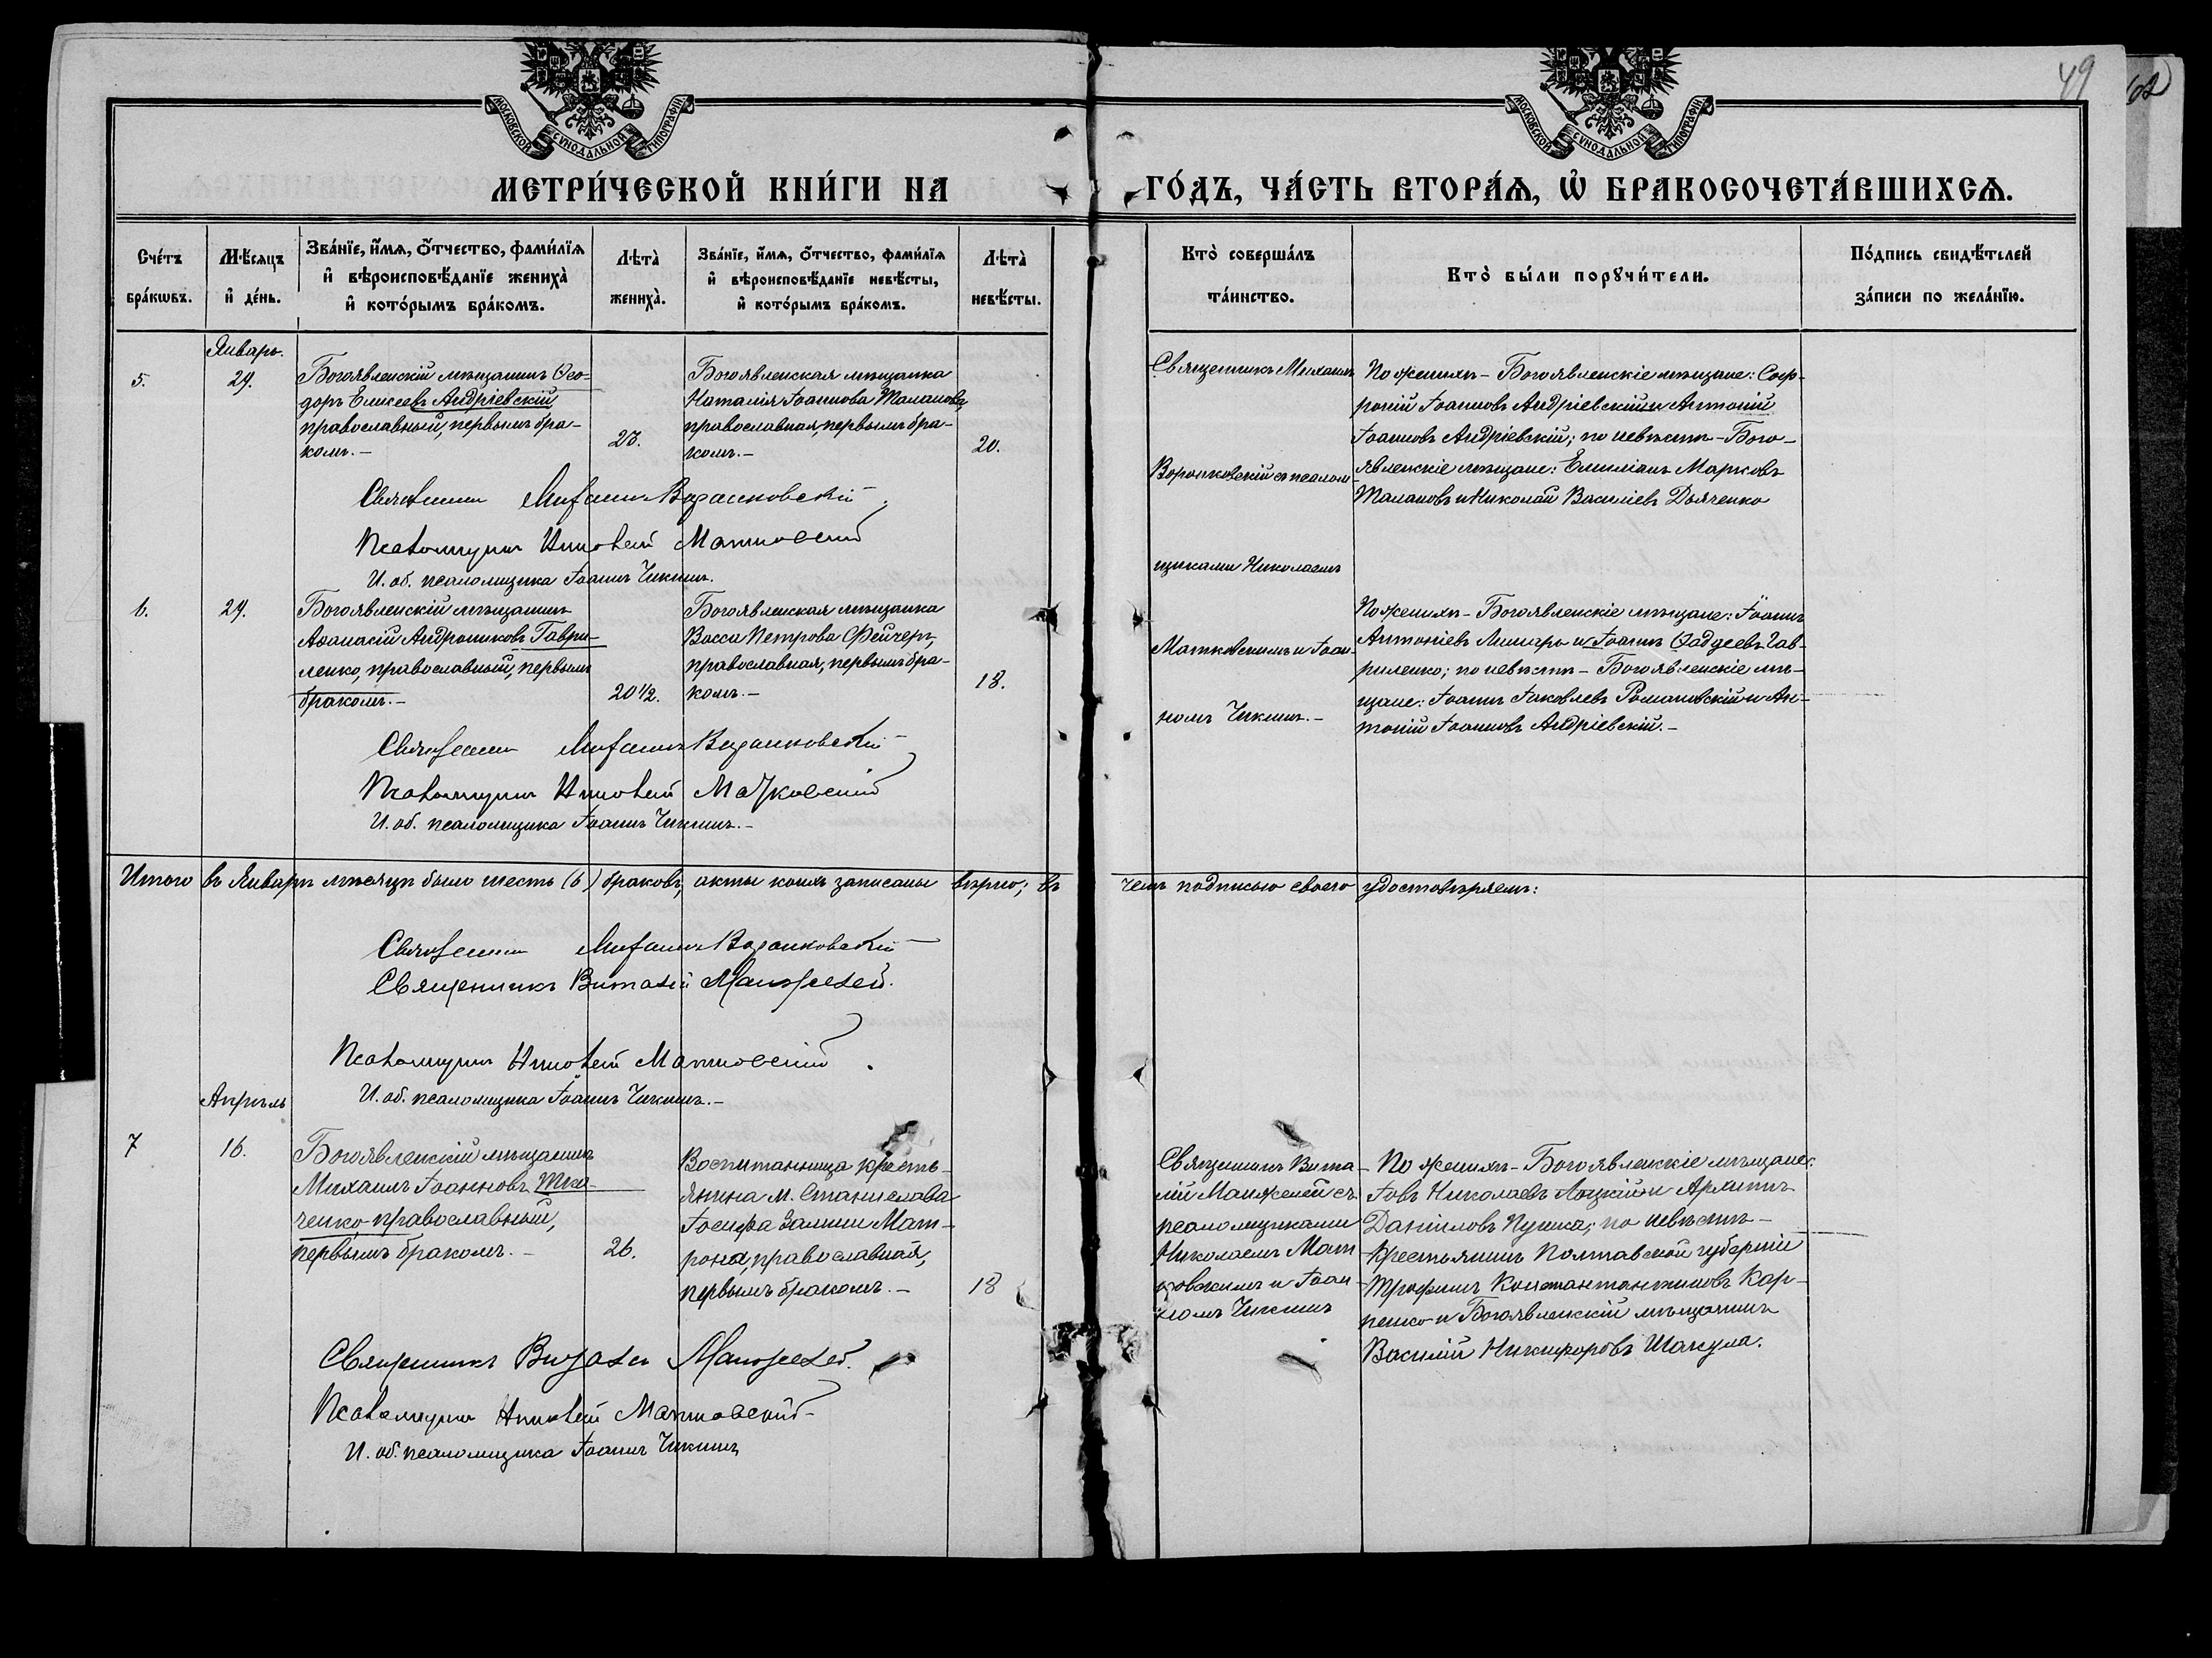 49
МОСКОВСКОЙ СѴНОДАЛЬНОЙ ТИПОГРАФІИ
МОСКОВСКОЙ СѴНОДАЛЬНОЙ ТИПОГРАФІИ
МЕТРИ́ЧЕСКОЙ КНИ́ГИ НА
ГО́ДЪ, ЧА́СТЬ ВТОРА́Ѧ, Ѽ БРАКОСОЧЕТА́ВШИХСѦ.
Сче́тъ бра́кѡвъ.
Мѣ́сѧцъ и҆ де́нь.
Зва́нїе, и҆́мѧ, ѻ҆́тчество, фами́лїѧ
и҆ вѣроисповѣ́данїе жениха̀
и҆ кото́рымъ бра́комъ.
Лѣта̀ жениха̀.
Зва́нїе, и҆́мѧ, ѻ҆́тчество, фами́лїѧ
и҆ вѣроисповѣ́данїе невѣ́сты,
и҆ кото́рымъ бра́комъ.
Лѣта̀ невѣ́сты.
Кто̀ соверша́лъ та́инство.
Кто̀ бы́ли порꙋчи́тели.
По́дпись свидѣ́телей
за́писи по жела́нїю.
Январь.
5.
29.
Богоявленскій мѣщанинъ Ѳео-
доръ Елисеевъ Андріевскій,
православный, первымъ бра-
комъ.-
23.
Богоявленская мѣщанка
Наталія Іоаннова Таланова,
православная, первымъ бра-
комъ.-
20.
Священникъ Михаилъ
Воронковскій съ псалом-
щиками Николаемъ
Матковскимъ и Іоан-
номъ Чикинъ.-
По женихѣ - Богоявленскіе мѣщане: Соф-
роній Іоанновъ Андріевскій и Антоній
Іоанновъ Андріевскій; по невѣстѣ - Бого-
явленскіе мѣщане: Емиліанъ Марковъ
Талановъ и Николай Василіевъ Дьяченко
Священникъ Михаилъ Воронковскій
Псаломщикъ Николай Матковскій
И. об. псаломщика Іоаннъ Чикинъ.
6.
29.
Богоявленскій мѣщанинъ
Аѳанасій Андрониковъ Гаври-
ленко, православный, первымъ
бракомъ.-
20 1/2.
Богоявленская мѣщанка
Васса Петрова Фейчеръ,
православная, первымъ бра-
комъ.-
18.
По женихѣ - Богоявленскіе мѣщане: Іоаннъ
Антоніевъ Лимарь и Іоаннъ Ѳаддеевъ Гав-
риленко; по невѣстѣ - Богоявленскіе мѣ-
щане: Іоаннъ Іаковлевъ Романовскій и Ан-
тоній Іоанновъ Андріевскій.-
Священникъ Михаилъ Воронковскій
Псаломщикъ Николай Матковскій
И. об. псаломщика Іоаннъ Чикинъ.-
Итого въ Январѣ мѣсяцѣ было шесть (6) браковъ, акты коихъ записаны вѣрно; въ чемъ подписью своего удостовѣряемъ:
Священникъ Михаилъ Воронковскій
Священникъ Виталій Манжелей.
Псаломщикъ Николай Матковскій.
И. об. псаломщика Іоаннъ Чикинъ.-
Апрѣль
7
16.
Богоявленскій мѣщанинъ
Михаилъ Іоанновъ Тка-
ченко, православный,
первымъ бракомъ.-
26.
Воспитанница кресть-
янина м. Станислава
Іосифа Матт-
рона, православная,
первымъ бракомъ.-
18
Священникъ Вита-
лій Манжелей съ
псаломщиками
Николаемъ Мат-
ковскимъ и Іоан-
номъ Чикинъ
По женихѣ - Богоявленскіе мѣщане:
Іовъ Николаевъ Лоцкій и
Даніиловъ по невѣстѣ -
Крестьянинъ Полтавской губерніи
Трофимъ Константантиновъ Кар-
пенко и Богоявленскій мѣщанинъ
Василій Никифоровъ Шакула.
Священникъ Виталій Манжелей.
Псаломщикъ Николай Матковскій
И. об. псаломщика Іоаннъ Чикинъ